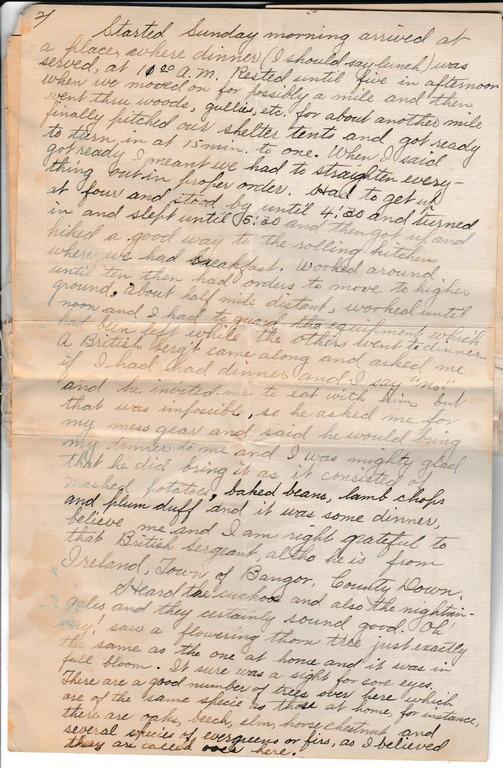 2/
Started Sunday morning arrived at
a place where dinner (I should say lunch) was
served, at 10 20 A.M. Rested until five in afternoon
when we moved on for possibly a mile and then
went thru woods, gullies, etc. for about another mile
finally pitched our shelter tents and got ready
to turn in at 15 min. to one. When I said
got ready I meant we had to straighten every-
thing out in proper order. Had to get up
at four and stood by until 4:30 and turned
in and slept until 5:30 and then got up and
hiked a good way to the rolling kitchens
where we had breakfast. Worked around
until ten then had orders to move to higher
ground, about half mile distant, worked until
noon and I had to guard the equipment which
had been left while the others went to dinner.
A British serg't came along and asked me
if I had had dinner and I say "no." but
and he invited me to eat with him but
that was impossible, so he asked me for
my mess gear and said he would bring
my dinner to me and I was mighty glad
that he did bring it as it consisted of
mashed potatoes, baked beans, lamb chops
and plum duff and it was some dinner,
believe me and I am right grateful to
that British sergeant, altho he is from
Ireland, Town of Bangor, County Down.
Heard the cuckoo and also the nightin-
gales and they certainly sound good. Oh
say! saw a flowering thorn tree just exactly
the same as the one at home and it was in
full bloom. It sure was a sight for sore eyes.
There are a good number of trees over here which
are of the same specie as those at home, for instance,
there are oaks, beech, elm, horse chestnut and
several species of evergreens or firs, as I believed
they are called over here.